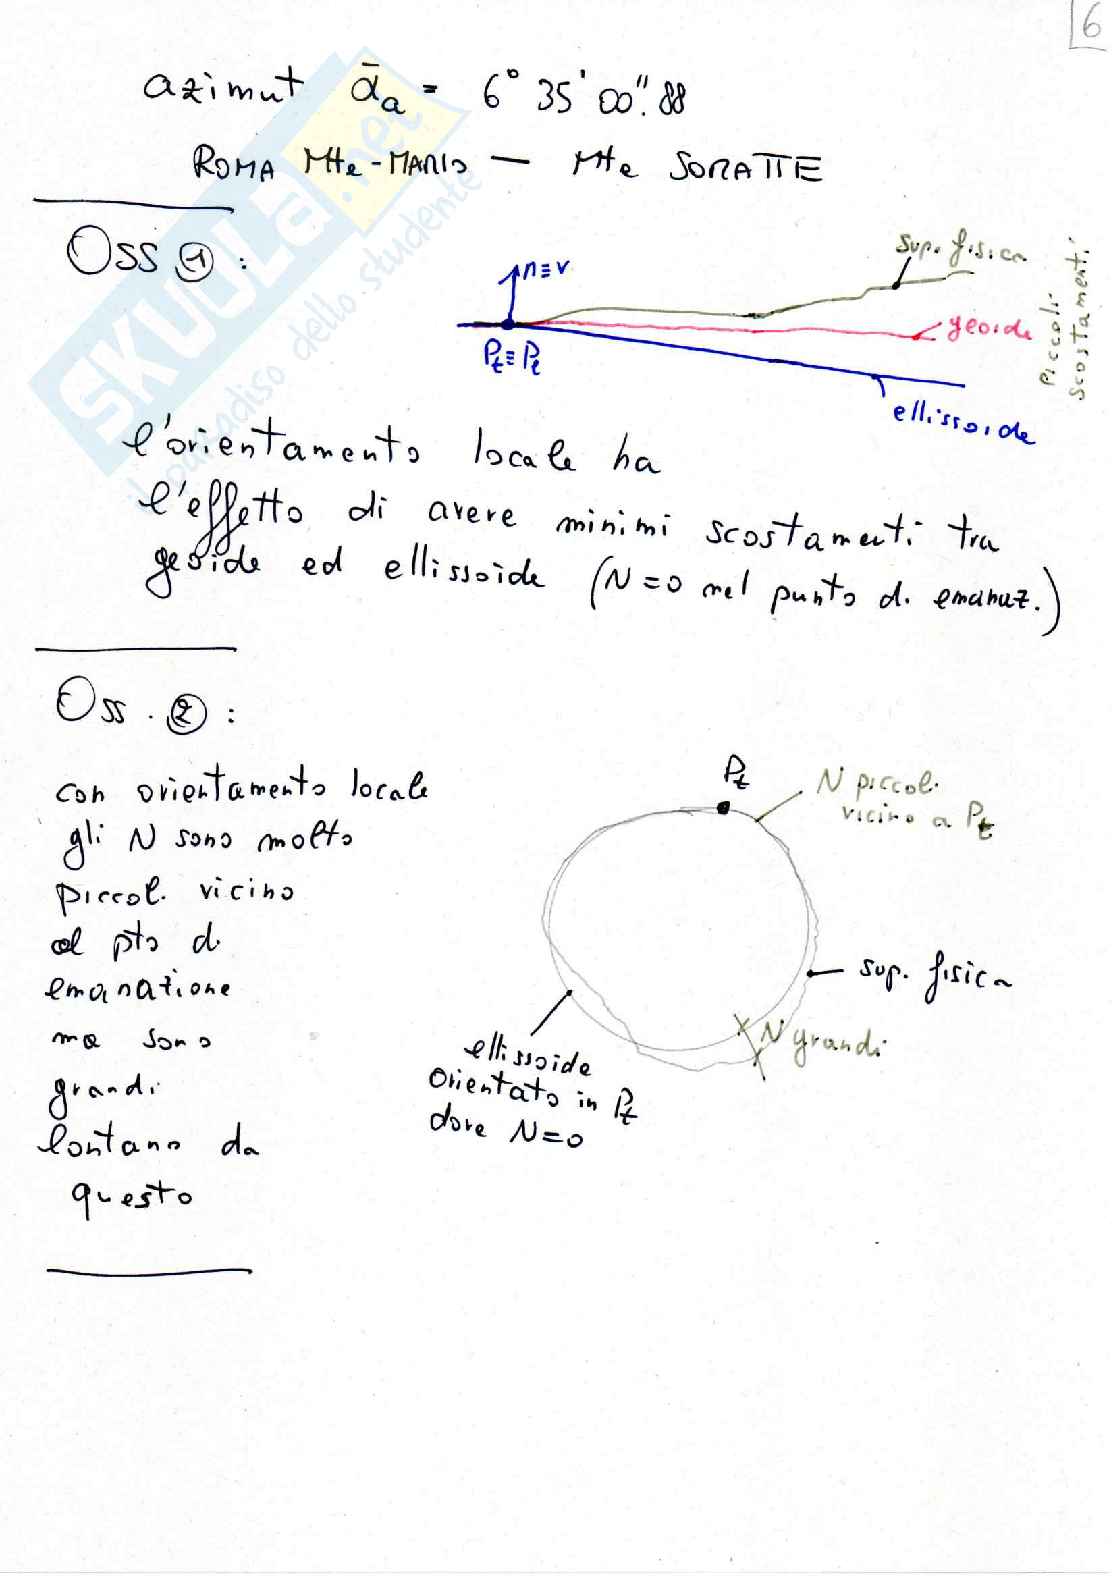 6
azimut ᾱa = 6° 35' 00".88
ROMA Mte-MARIO — Mte SORATTE
Oss ①:
n≡v
sup. fisica
geoide
ellissoide
Pt≡Pt
Piccoli
scostamenti
l'orientamento locale ha
l'effetto di avere minimi scostamenti tra
geoide ed ellissoide (N=0 nel punto di emanaz.)
Oss. ②:
con orientamento locale
gli N sono molto
piccoli vicino
al pto di
emanazione
ma sono
grandi
lontano da
questo
Pt
N piccoli
vicino a Pt
sup. fisica
N grandi
ellissoide
orientato in Pt
dove N=0
SKUOLA.net
il paradiso dello studente